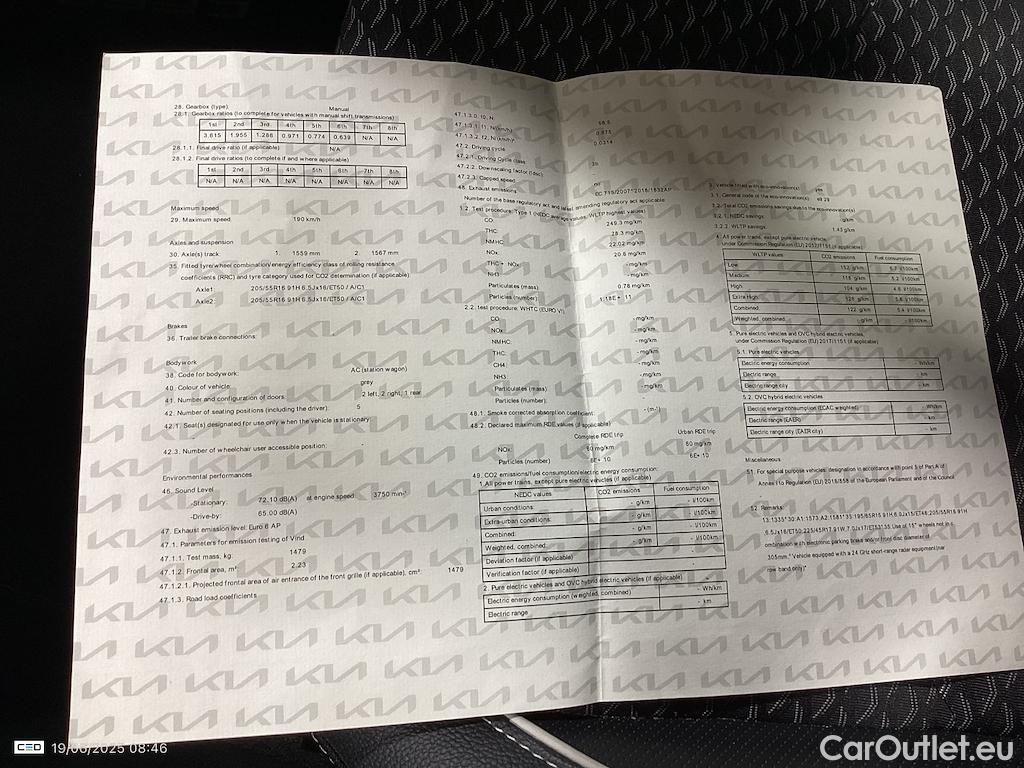 28. Gearbox (type): Manual
28.1. Gearbox ratios (to complete for vehicles with manual shift transmissions)
1st 2nd 3rd 4th 5th 6th 7th 8th
3.615 1.955 1.286 0.971 0.774 0.639 N/A N/A
28.1.1. Final drive ratio (if applicable) N/A
28.1.2. Final drive ratios (to complete if and where applicable)
1st 2nd 3rd 4th 5th 6th 7th 8th
N/A N/A N/A N/A N/A N/A N/A N/A
Maximum speed
29. Maximum speed: 190 km/h
Axles and suspension
30. Axle(s) track: 1. 1559 mm 2. 1567 mm
35. Fitted tyre/wheel combination/energy efficiency class of rolling resistance
coefficients (RRC) and tyre category used for CO2 determination (if applicable)
Axle1: 205/55R16 91H 6.5Jx16/ET50 / A/C1
Axle2: 205/55R16 91H 6.5Jx16/ET50 / A/C1
Brakes
36. Trailer brake connections:
Bodywork
38. Code for bodywork: AC (station wagon)
40. Colour of vehicle: grey
41. Number and configuration of doors: 2 left, 2 right, 1 rear
42. Number of seating positions (including the driver): 5
42.1. Seat(s) designated for use only when the vehicle is stationary:
-
42.3. Number of wheelchair user accessible position: -
Environmental performances
46. Sound Level
-Stationary: 72.10 dB(A) at engine speed: 3750 min-¹
-Drive-by: 65.00 dB(A)
47. Exhaust emission level: Euro 6 AP
47.1. Parameters for emission testing of Vind
47.1.1. Test mass, kg: 1479
47.1.2. Frontal area, m²: 2.23
47.1.2.1. Projected frontal area of air entrance of the front grille (if applicable), cm²: 1479
47.1.3. Road load coefficients
47.1.3.0. f0, N:
47.1.3.1. f1, N/(km/h)
47.1.3.2. f2, N/(km/h)²
0.0314
47.2. Driving cycle
47.2.1. Driving Cycle class
47.2.2. Downscaling factor (fdsc)
47.2.3. Capped speed no
48. Exhaust emissions EC 715/2007*2018/1832AP
Number of the base regulatory act and latest amending regulatory act applicable
1.2. Test procedure: Type 1 (NEDC average values, WLTP highest values)
CO: 249.3 mg/km
THC: 28.3 mg/km
NMHC: 22.02 mg/km
NOx: 20.6 mg/km
THC + NOx: - mg/km
NH3: - mg/km
Particulates (mass) 0.78 mg/km
Particles (number) 1.18E+ 11
2.2. test procedure: WHTC (EURO VI)
CO: - mg/km
NOx: - mg/km
NMHC: - mg/km
THC: - mg/km
CH4: - mg/km
NH3: - mg/km
Particulates (mass) - mg/km
Particles (number):
48.1. Smoke corrected absorption coefficient: - (m-¹)
48.2. Declared maximum RDE values (if applicable)
Complete RDE trip Urban RDE trip
NOx: 60 mg/km 60 mg/km
Particles (number) 6E+ 10 6E+ 10
49. CO2 emissions/fuel consumption/electric energy consumption:
1. All power trains, except pure electric vehicles (if applicable)
NEDC values CO2 emissions Fuel consumption
Urban conditions: - g/km - l/100km
Extra-urban conditions: - g/km - l/100km
Combined: - g/km - l/100km
Weighted, combined - g/km - l/100km
Deviation factor (if applicable) -
Verification factor (if applicable) -
2. Pure electric vehicles and OVC hybrid electric vehicles (if applicable)
Electric energy consumption (weighted, combined) - Wh/km
Electric range - km
3. Vehicle fitted with eco-innovation(s): yes
3.1. General code of the eco-innovation(s): e9 29
3.2. Total CO2 emissions savings due to the eco-innovation(s)
3.2.1. NEDC savings: - g/km
3.2.2. WLTP savings: 1.43 g/km
4. All power trains, except pure electric vehicle,
under Commission Regulation (EU) 2017/1151 (if applicable)
WLTP values CO2 emissions Fuel consumption
Low 152 g/km 6.7 l/100km
Medium 118 g/km 5.2 l/100km
High 104 g/km 4.6 l/100km
Extra High 128 g/km 5.6 l/100km
Combined 122 g/km 5.4 l/100km
Weighted, combined - g/km - l/100km
5. Pure electric vehicles and OVC hybrid electric vehicles,
under Commission Regulation (EU) 2017/1151 (if applicable)
5.1. Pure electric vehicles
Electric energy consumption - Wh/km
Electric range - km
Electric range city - km
5.2. OVC hybrid electric vehicles
Electric energy consumption (ECAC weighted) - Wh/km
Electric range (EAER) - km
Electric range city (EAER city) - km
Miscellaneous
51. For special purpose vehicles: designation in accordance with point 5 of Part A of
Annex I to Regulation (EU) 2018/858 of the European Parliament and of the Council
-
52. Remarks:
6.5Jx16/ET50;225/45R17 91W 7.0Jx17/ET53*35.Use of 15" wheels not in c
ombination with electronic parking brake and/or front disc diameter of
305mm.* Vehicle equipped with a 24 GHz short-range radar equipment(nar
row band only)*
CEO 19/06/2025 08:46
CarOutlet.eu